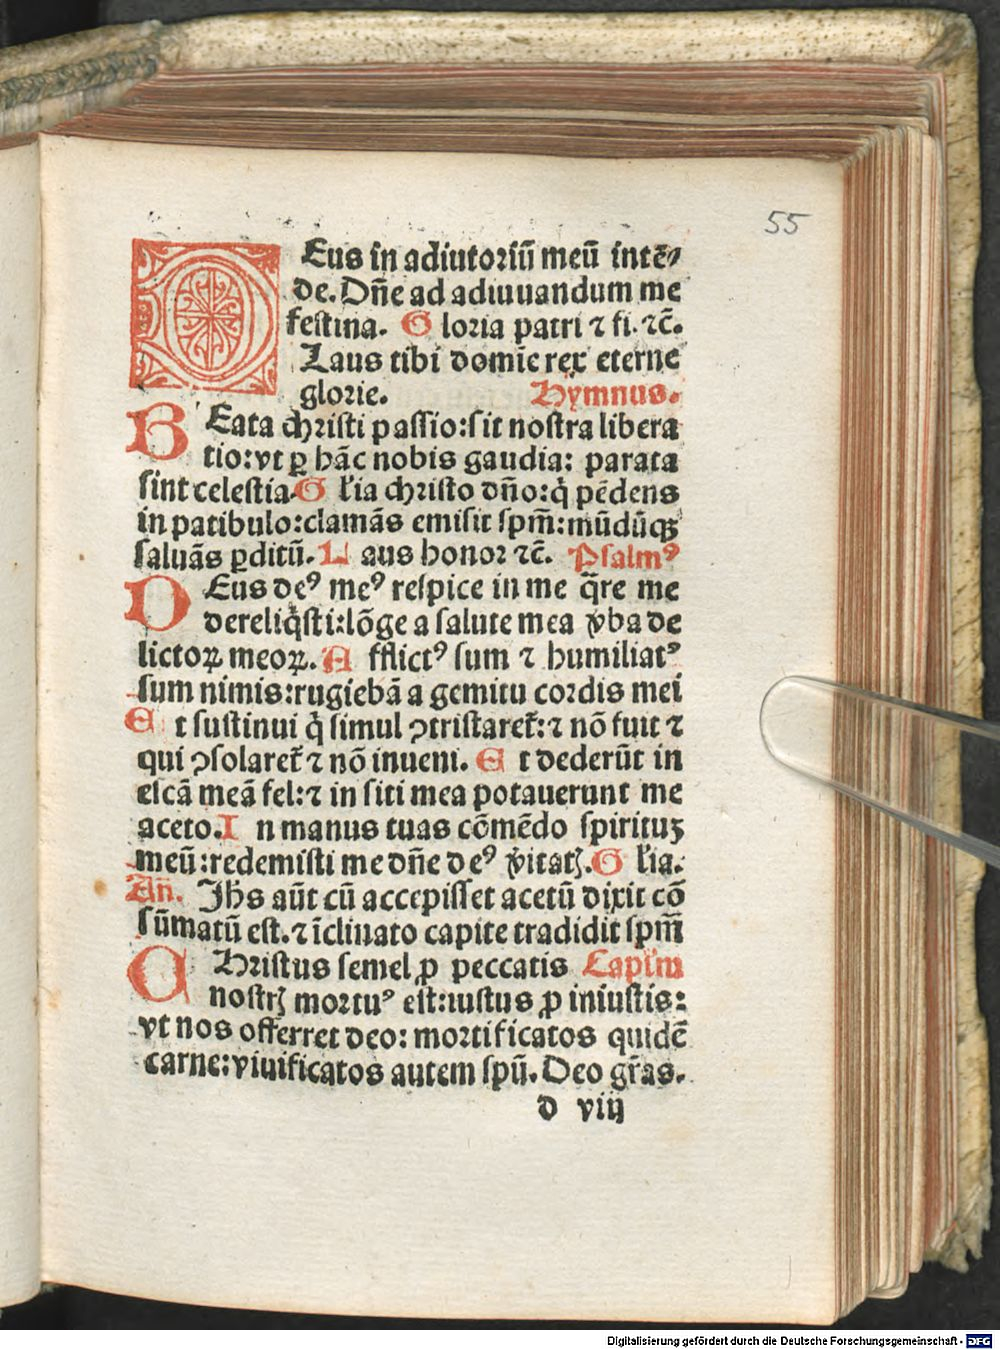 55
DEus in adiutoriū meū intē/
de. Dn̄e ad adiuuandum me
festina. Gloria patri ⁊ fi. ⁊c̄.
Laus tibi domīe rex eterne
glorie. Hymnus.
BEata christi passio: sit nostra libera
tio: vt ꝑ hāc nobis gaudia: parata
sint celestia. Gl'ia christo dn̄o: q̇ pēdens
in patibulo: clamās emisit spm̄: mūdūqꝫ
saluās ꝑditū. Laus honor ⁊c̄. Psalmꝰ
DEus deꝰ meꝰ respice in me q̄re me
dereliq̇sti: lōge a salute mea v̓ba de
lictoꝝ meoꝝ. Afflictꝰ sum ⁊ humiliatꝰ
sum nimis: rugiebā a gemitu cordis mei
Et sustinui q̇ simul ꝯtristaret᷑: ⁊ nō fuit ⁊
qui ꝯsolaret᷑ ⁊ nō inueni. Et dederūt in
escā meā fel: ⁊ in siti mea potauerunt me
aceto. In manus tuas cōmēdo spirituꝫ
meū: redemisti me dn̄e deꝰ v̓itatꝭ. Gl'ia.
An̄. Jhs aūt cū accepisset acetū dixit cō
sūmatū est. ⁊ īclinato capite tradidit spm̄
CHristus semel ꝓ peccatis Capl'm
nostrꝭ mortuꝰ est: iustus ꝓ iniustis:
vt nos offerret deo: mortificatos quidē
carne: viuificatos autem spū. Deo gr̄as.
d viij
Digitalisierung gefördert durch die Deutsche Forschungsgemeinschaft - DFG